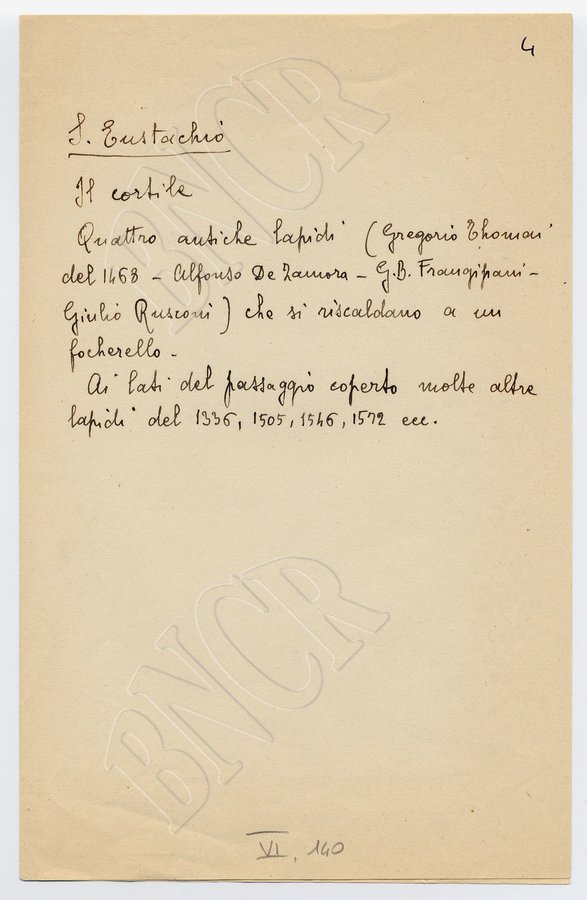 4
S. Eustachio
Il cortile
Quattro antiche lapidi (Gregorio Thomasi
del 1468 - Alfonso De Zamora - G.B. Frangipani -
Giulio Rusconi) che si riscaldano a un
focherello -
Ai lati del passaggio coperto molte altre
lapidi del 1336, 1505, 1546, 1572 ecc.
VI. 140
BNCR
BNCR